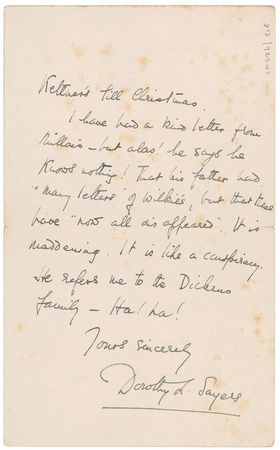 Kettner's till Christmas.
I have had a kind letter from
Millais – but alas! he says he
knows nothing! That his father had
"many letters" of Wilkie's, but that these
have "now all disappeared". It is
maddening. It is like a conspiracy.
He refers me to the Dickens
family – Ha! ha!
Yours sincerely
Dorothy L. Sayers